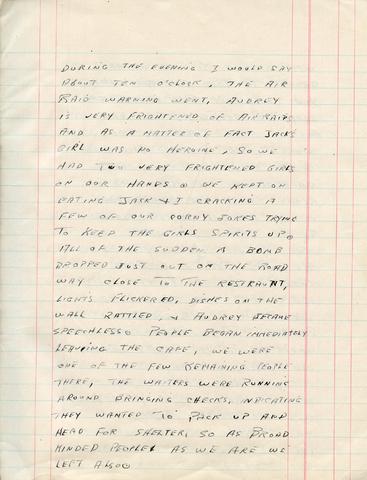 DURING THE EVENING I WOULD SAY
ABOUT TEN O'CLOCK, THE AIR
RAID WARNING WENT, AUDREY
IS VERY FRIGHTENED OF AIR RAIDS
AND AS A MATTER OF FACT JACK'S
GIRL WAS NO HEROINE, SO WE
HAD TWO VERY FRIGHTENED GIRLS
ON OUR HANDS. WE KEPT ON
EATING JACK & I CRACKING A
FEW OF OUR CORNY JOKES TRYING
TO KEEP THE GIRLS SPIRITS UP.
ALL OF THE SUDDEN A BOMB
DROPPED JUST OUT ON THE ROAD
WAY CLOSE TO THE RESTRAUNT,
LIGHTS FLICKERED, DISHES ON THE
WALL RATTLED, & AUDREY BECAME
SPEECHLESS. PEOPLE BEGAN IMMEDIATELY
LEAVING THE CAFE, WE WERE
ONE OF THE FEW REMAINING PEOPLE
THERE, THE WAITERS WERE RUNNING
AROUND BRINGING CHECKS, INDICATING
THEY WANTED TO PACK UP AND
HEAD FOR SHELTER, SO AS BROAD
MINDED PEOPLE AS WE ARE WE
LEFT ALSO.